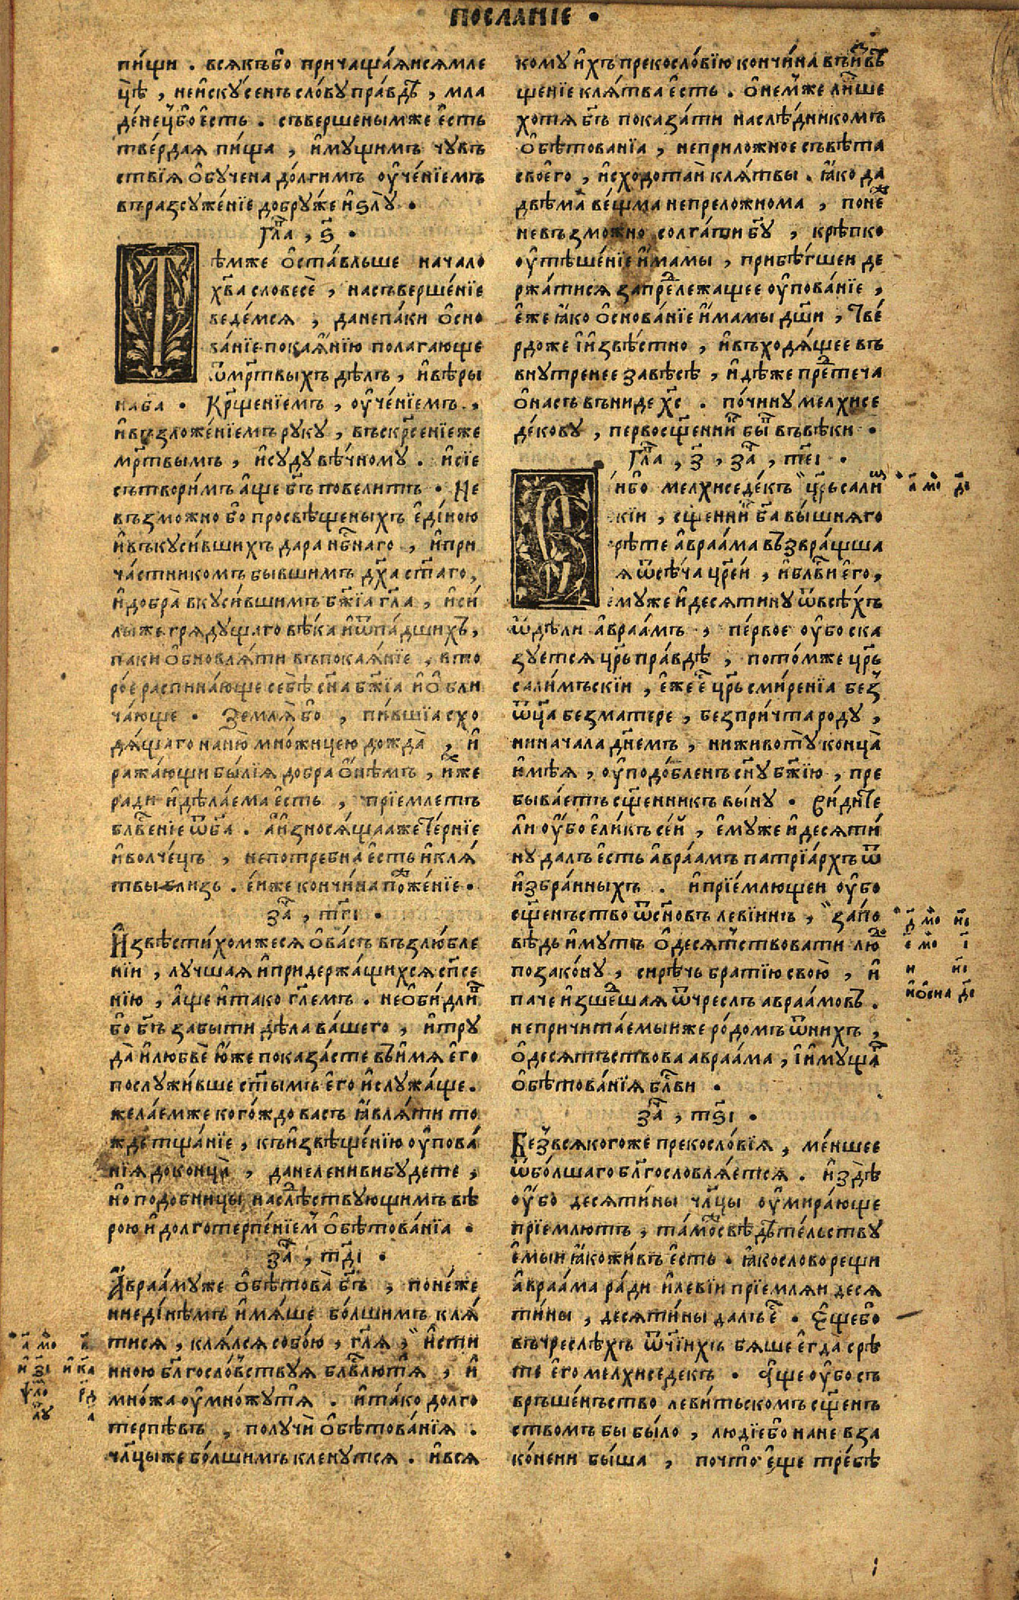 ПОСЛАНІЕ .
пи́щи . всѧ́къбо причаща́ѧисѧмле
цѣ̀ , неи҆ску́сенъ сло́ву пра́вдъ , мла
де́нецъбо е҆́сть . съверше́нымже е҆́сть
тве́рдаѧ пи́ща , и҆му́щимъ чу́въ
ствїѧ ѻ҆буче́на до́лгимъ ѹ҆че́нїемъ
въразсуже́нїе добру́же и҆ ѕлу̀ .
Гл҃а , ѕ҃ .
Т
ѣ́мже ѻ҆ста́вльше нача́ло
хв҃а словесѐ , насъверше́нїе
веде́мсѧ , данепа́ки ѻ҆сно
ва́нїе покаѧ́нїю полага́юще
ѿмр҃твыхъ дѣ́лъ , и҆вѣ́ры
наб҃а . Кр҃ще́нїемъ , ѹ҆че́нїемъ ,
и҆възложе́нїемъ ру́ку , въскр҃се́нїеже
мр҃твымъ , и҆суду̀ вѣ́чному . и҆сїѐ
сътвори́мъ а҆́ще бг҃ъ повели́тъ . Не
възмо́жно бо просвѣще́ныхъ е҆ди́ною
и҆въкуси́вшихъ да́ра нб҃наго , и҆при
ча́стникомъ бы́вшимъ дх҃а ст҃а́го,
и҆добра̀ вкуси́вшимъ бж҃їа гл҃а , и҆си́
лыже грѧду́щаго вѣ́ка и҆ѿпа́дшихъ,
па́ки ѻ҆бновлѧ́ти въпокаѧ́нїе , вто
ро́е распина́юще себѣ̀ сн҃а бж҃їа и҆ ѻ҆бли
ча́юще . Землѧ̀ бо , пи́вшїа схо
дѧ́щаго наню̀ мно́жицею дождѧ̀ , и҆
ража́ющи бы́лїѧ добра̀ ѻ҆́нѣмъ , и҆́хже
ради и҆ дѣ́лаема е҆́сть , прїе́млетъ
блв҃е́нїе ѿб҃а . а҆и҆зносѧ́щаѧже те́рнїе
и҆волче́цъ , непотре́бна е҆́сть и҆клѧ́
твы близъ . е҆́ѧже кончи́на пожже́нїе .
за҃ , тг҃і .
И҆звѣсти́хомжесѧ ѻ҆ва́съ възлю́бле
нїи , лу́чшаѧ и҆придержа́щихсѧ сп҃се
нїю , а҆́ще и҆та́ко гл҃емъ . неѻ҆би́длив
бо бг҃ъ забы́ти дѣ́ла ва́шего , и҆тру
да̀ и҆любвѐ ю҆́же показа́сте въи́мѧ е҆го̀
послужи́вше ст҃ы́мъ е҆го̀ и҆служа́ще .
жела́емже кого́ждо васъ ꙗ҆влѧ́ти то
жде тща́нїе , къи҆звѣще́нїю ѹ҆пова́
нїѧ доконца̀ , данелени́ви бу́дете ,
но подо́бницы наслѣ́дствующимъ вѣ́
рою и҆ долготерпѣ́нїемъ ѻ҆бѣтова́нїа .
за҃ , тд҃і .
А҆враа́муже ѻ҆бѣтова̀ бг҃ъ , поне́же
ниеди́нѣмъ и҆мѧ́ше бо́лшимъ клѧ́
тисѧ , клѧ́лсѧ собо́ю , гл҃ѧ , и҆́сти
нною бл҃гослове́ствуѧ блв҃лю́тѧ , и҆
множа ѹ҆мно́жутѧ . и҆та́ко долго
терпѣ́въ , получѝ ѻ҆бѣтова́нїѧ .
чл҃цыже бо́лшимъ клену́тсѧ . и҆всѧ
кому и҆́хъ прекосло́вїю кончи́на въи҆звѣ
ще́нїе клѧ́тва е҆́сть . ѻ҆не́мже ли́ше
хотѧ̀ бг҃ъ показа́ти наслѣ́дникомъ
ѻ҆бѣтова́нїа , неприло́жное съвѣ́та
своего̀ , и҆схода́таи клѧ́твы . ꙗ҆́ко да
двѣма̀ ве́щма непрело́жнома , поне́же
невъзмо́жно солга́ти бг҃у , крѣ́пко
ѹ҆тѣше́нїе и҆́мамы , прибѣ́гшеи де
ржа́тисѧ запредлежа́щее ѹ҆пова́нїе ,
е҆́же ꙗ҆́ко ѻ҆снова́нїе и҆́мамы дш҃и , тве
рдоже и҆ и҆звѣ́стно , и҆въходѧ́щее въ
вну́тренее завѣ́сѣ , и҆дѣ́же предтеча
ѻ҆на́съ вънидѐ хс҃ . по́чину мелхисе
де́кову , первосще́нникъ бы́въ въвѣ́ки .
Гл҃а , з҃ , за҃ , те҃і .
С
и́бо мелхиседе́къ цр҃ь сали́м
скїи , сще́нникъ бг҃а вы́шнѧго
срѣ́те а҆враа́ма възвра́щша
ѧ ѿсѣ́ча цр҃е́й , и҆блв҃и е҆го̀,
е҆му́же и҆десѧти́ну ѿвсѣ́хъ
ѿдѣлѝ а҆враа́мъ , пе́рвое ѹ҆́бо ска
зу́етсѧ цр҃ь пра́вдѣ , пото́мже цр҃ь
сали́мъскїи , е҆́же е҆́сть цр҃ь смире́нїа без̾
ѿц҃а безма́тере , беспри́чта ро́ду ,
ни нача́ла дн҃емъ , ни животу̀ конца̀
и҆мѣ́ѧ , ѹ҆подо́бленъ сн҃у бж҃їю , пре
быва́етъ сще́нникъ вы́ну . Ви́дите
ли ѹ҆́бо е҆ли́къ се́й , е҆му́же и҆десѧти́
ну да́лъ е҆́сть а҆враа́мъ патрїа́рхъ ѿ
и҆збра́нныхъ . и҆прїе́млющеи ѹ҆́бо
сще́нъство ѿсн҃о́въ леві́инъ , за́по
вѣдь и҆му́тъ ѻ҆десѧ́тствовати лю́ди
позако́ну , си́рѣчь бра́тїю свою̀ , и҆
па́че и҆зше́дшаѧ ѿчре́слъ авраа́мовъ .
непричита́емыиже ро́домъ ѿни́хъ ,
ѻ҆десѧ́тъствова авраа́ма , и҆ и҆му́щаго
ѻ҆бѣтова́нїѧ блв҃и .
за҃ , тѕ҃і .
Без̾всѧ́когоже прекосло́вїѧ , ме́ншее
ѿбо́лшаго бл҃гословлѧ́етсѧ . и҆здѣ̀
ѹ҆́бо десѧти́ны чл҃цы ѹ҆мира́юще
прїе́млютъ , та́мо свѣдѣ́тельству
е҆мый ꙗ҆́ко жи́въ е҆́сть . ꙗ҆́кослово рещѝ
а҆враа́ма ра́ди и҆леві́и прїе́млѧи десѧ
ти́ны , десѧти́ны да́лъ е҆́сть . Е҆ще́бо
въчре́слѣхъ ѿчїихъ бѧ́ше е҆гда̀ срѣ́
те е҆го̀ мелхиседе́къ . А҆́ще ѹ҆́бо съ
врьше́нъство леви́тьскомъ сще́нъ
ствомъ бы бы́ло , лю́дїебо нане́ вза
ко́нени бы́ша , почто̀ е҆щѐ тре́бѣ